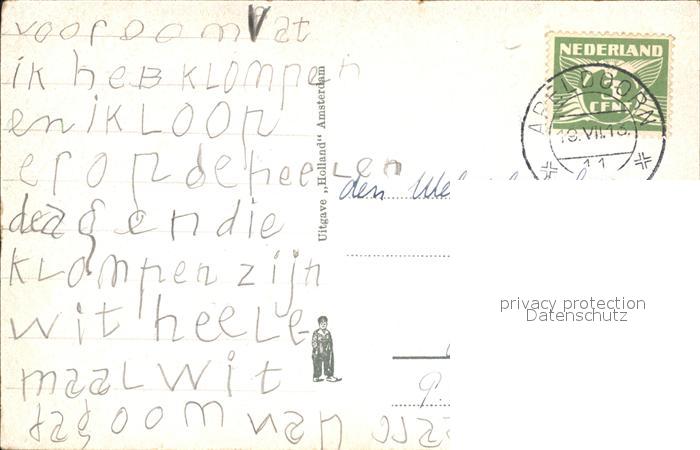 voor oom Pat
ik heB KLOMPeN
en iK LOOP
er op de heeLen
dag en die
KLOMPen zijn
wit heeLe
maaL wit
dag oom van
Uitgave „Holland“ Amsterdam
NEDERLAND
CENT
APELDOORN
den
privacy protection
Datenschutz